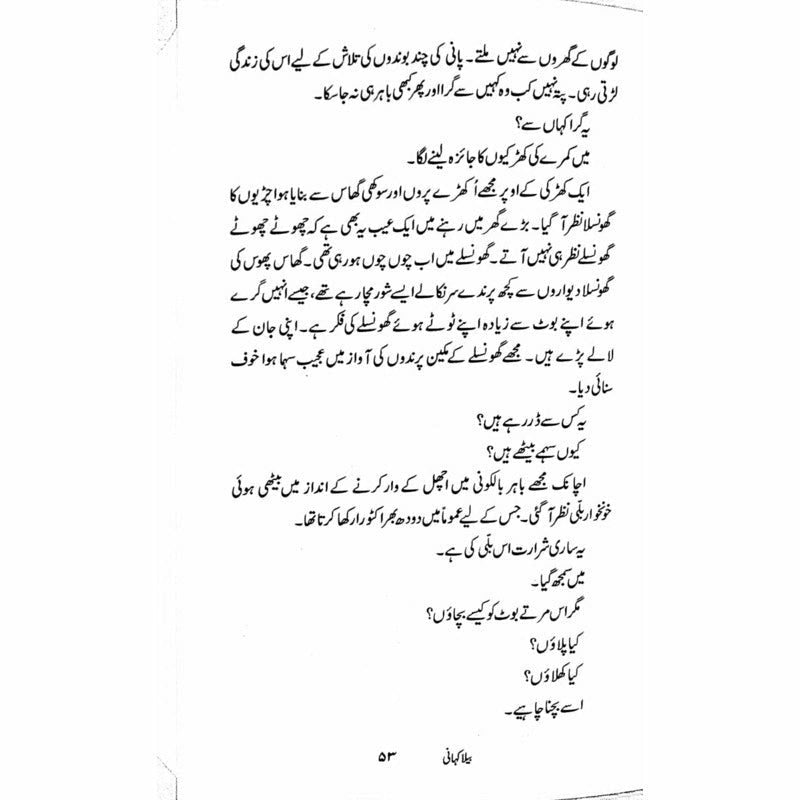 لوگوں کے گھروں سے نہیں ملتے۔ پانی کی چند بوندوں کی تلاش کے لیے اس کی زندگی
لڑتی رہی۔ پتہ نہیں کب وہ کہیں سے گرا اور پھر کبھی باہر ہی نہ جا سکا۔
یہ گرا کہاں سے؟
میں کمرے کی کھڑکیوں کا جائزہ لینے لگا۔
ایک کھڑکی کے اوپر مجھے اُکھڑے پروں اور سوکھی گھاس سے بنایا ہوا چڑیوں کا
گھونسلا نظر آ گیا۔ بڑے گھر میں رہنے میں ایک عیب یہ بھی ہے کہ چھوٹے چھوٹے
گھونسلے نظر ہی نہیں آتے۔ گھونسلے میں اب چوں چوں ہو رہی تھی۔ گھاس پھوس کی
گھونسلا دیواروں سے کچھ پرندے سر نکالے ایسے شور مچا رہے تھے، جیسے انہیں گرے
ہوئے اپنے بوٹ سے زیادہ اپنے ٹوٹے ہوئے گھونسلے کی فکر ہے۔ اپنی جان کے
لالے پڑے ہیں۔ مجھے گھونسلے کے مکین پرندوں کی آواز میں عجیب سہما ہوا خوف
سنائی دیا۔
یہ کس سے ڈر رہے ہیں؟
کیوں سہمے بیٹھے ہیں؟
اچانک مجھے باہر بالکونی میں اچھل کے وار کرنے کے انداز میں بیٹھی ہوئی
خونخوار بلّی نظر آ گئی۔ جس کے لیے عموماً میں دودھ بھرا کٹورا رکھا کرتا تھا۔
یہ ساری شرارت اس بلّی کی ہے۔
میں سمجھ گیا۔
مگر اس مرتے بوٹ کو کیسے بچاؤں؟
کیا پلاؤں؟
کیا کھلاؤں؟
اسے بچنا چاہیے۔
بیلا کہانی ۵۳